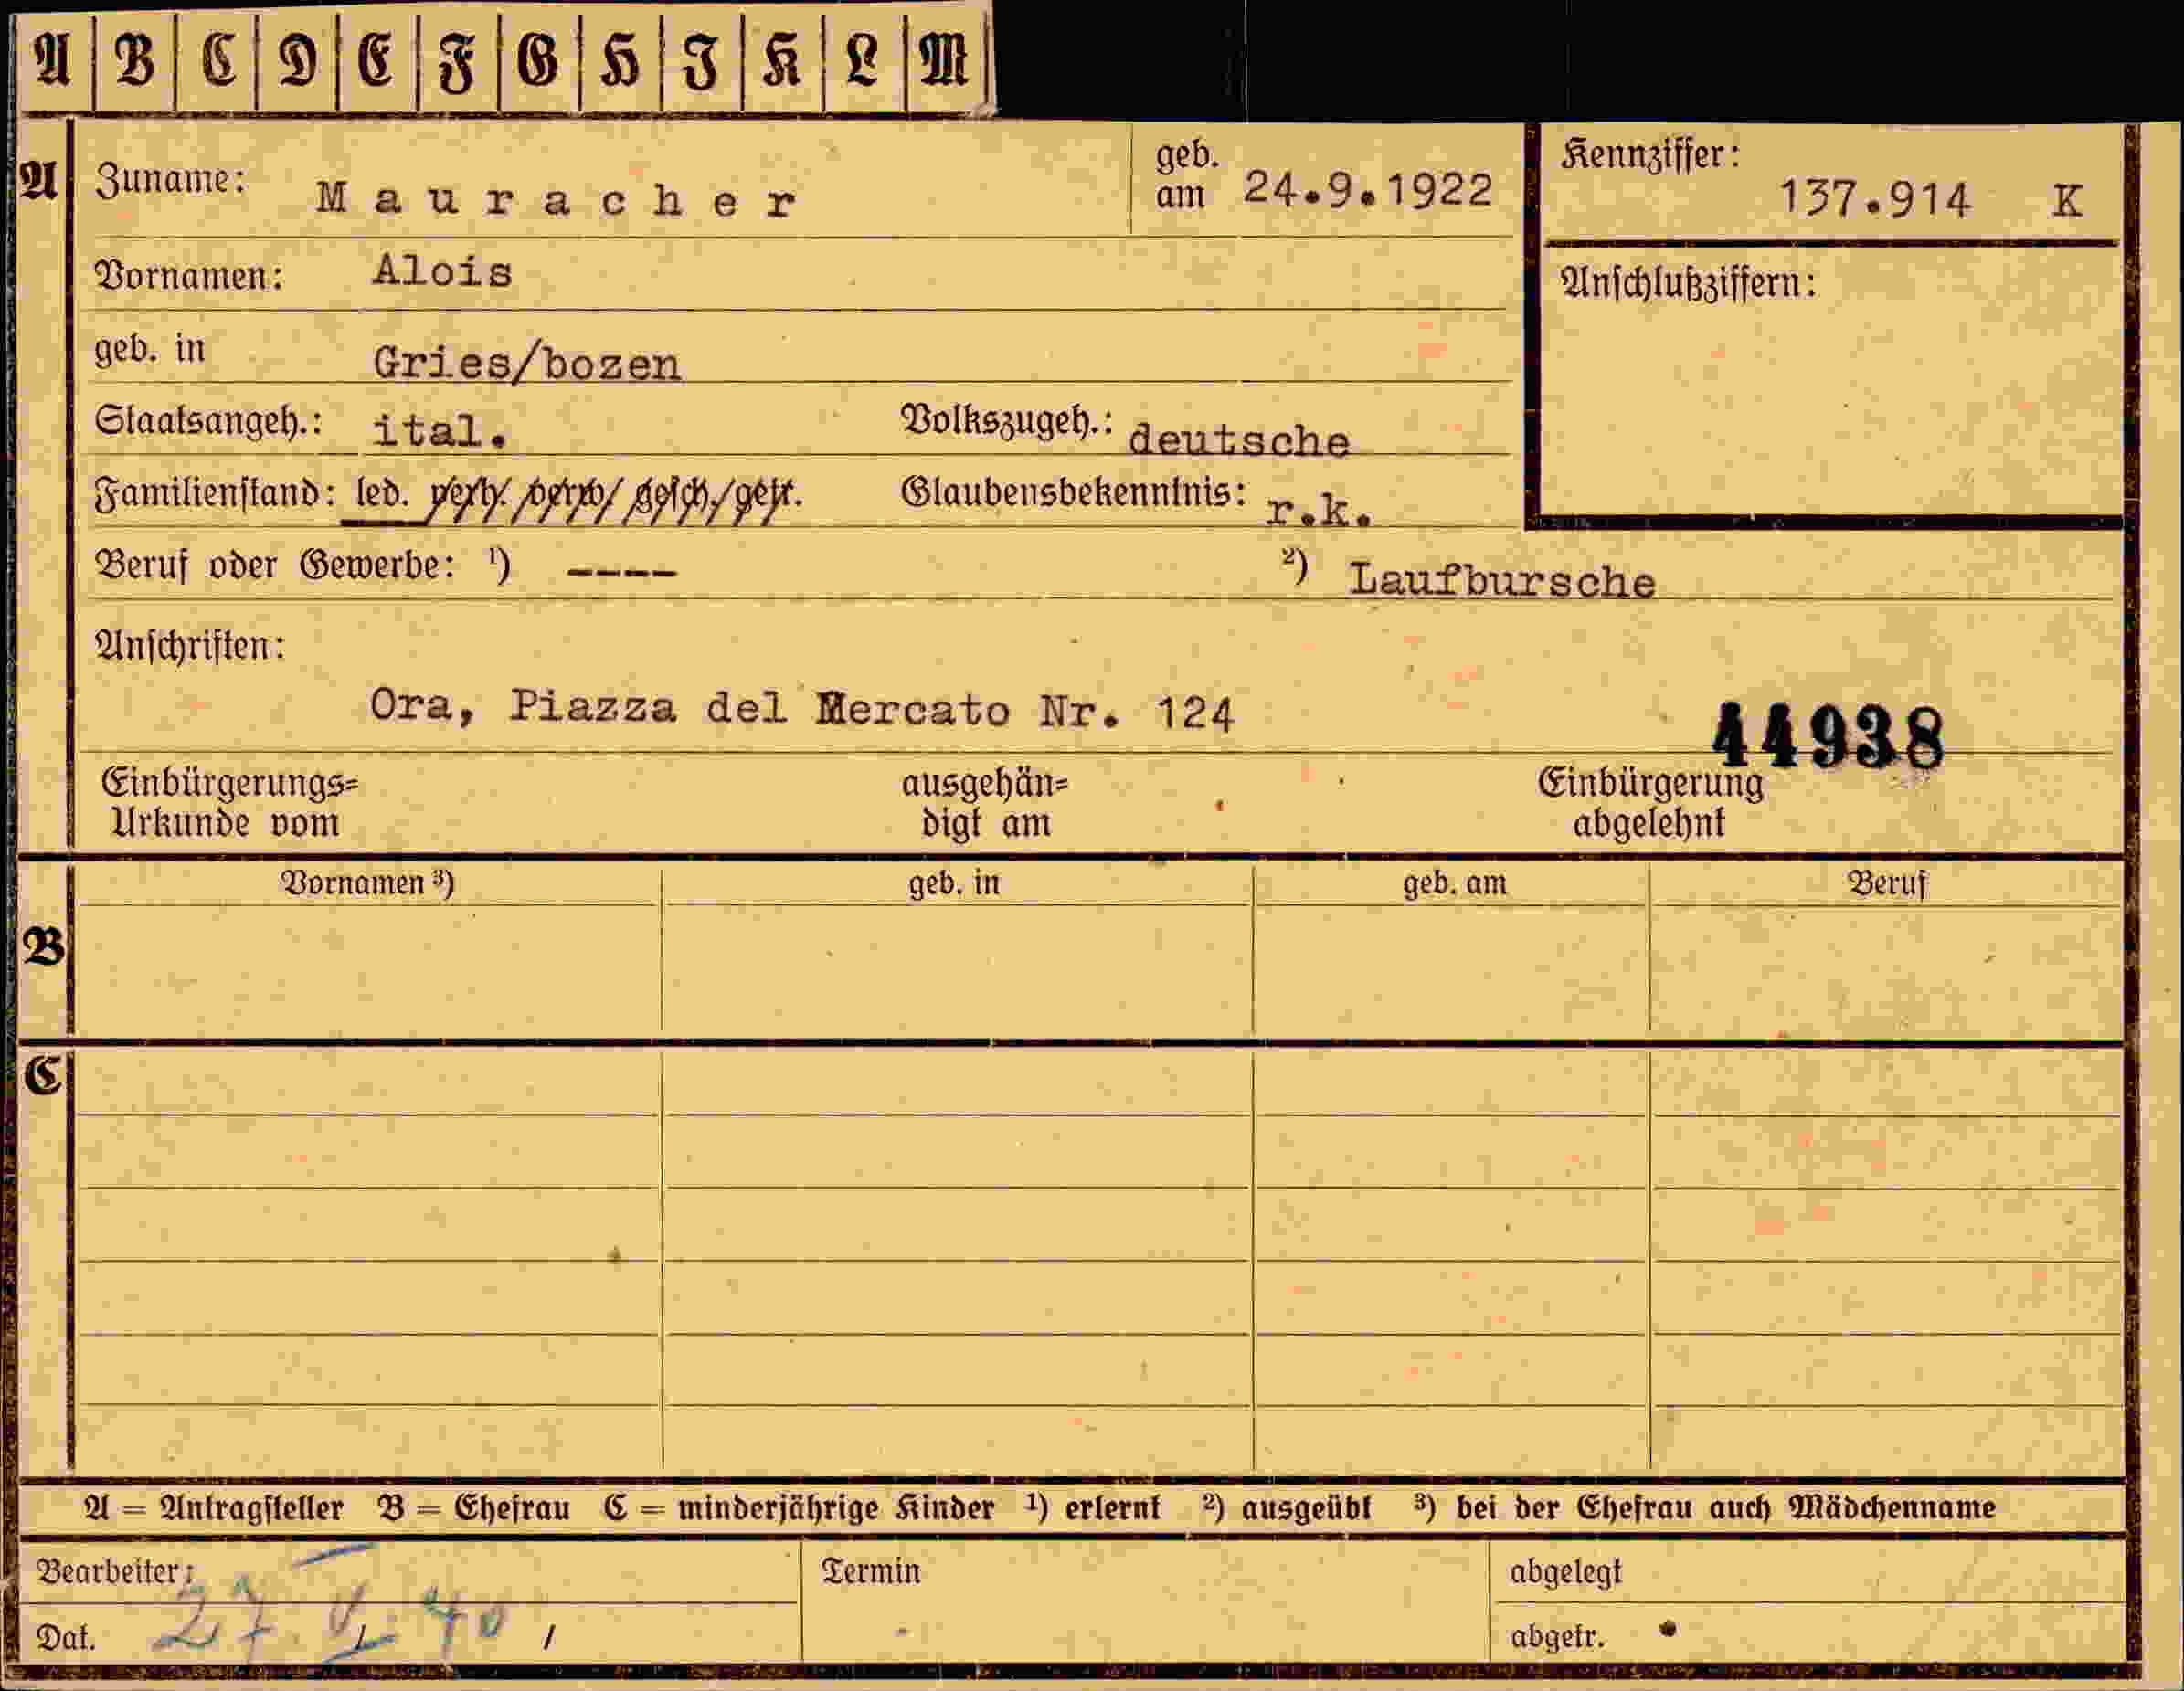 A B C D E F G H I K L M
A
Zuname: Mauracher geb. am 24.9.1922
Kennziffer: 137.914 K
Vornamen: Alois
Anschlußziffern:
geb. in Gries/bozen
Staatsangeh.: ital. Volkszugeh.: deutsche
Familienstand: led. verh. verw. gesch. getr. Glaubensbekenntnis: r.k.
Beruf oder Gewerbe: ¹) ---- ²) Laufbursche
Anschriften:
Ora, Piazza del Mercato Nr. 124
44938
Einbürgerungs= ausgehän= Einbürgerung
Urkunde vom digt am abgelehnt
Vornamen ³) geb. in geb. am Beruf
B
C
A = Antragsteller B = Ehefrau C = minderjährige Kinder ¹) erlernt ²) ausgeübt ³) bei der Ehefrau auch Mädchenname
Bearbeiter: Termin abgelegt
Dat. 27 V 40 abgetr.